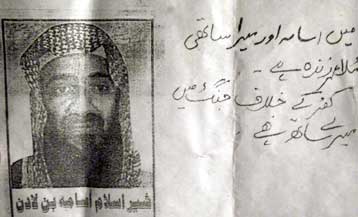 میں اسامہ اور میرا ساتھی
ملا عمر زندہ ہے۔
کفر کے خلاف جنگ میں
میرے ساتھ ہے
شیر اسلام اسامہ بن لادن